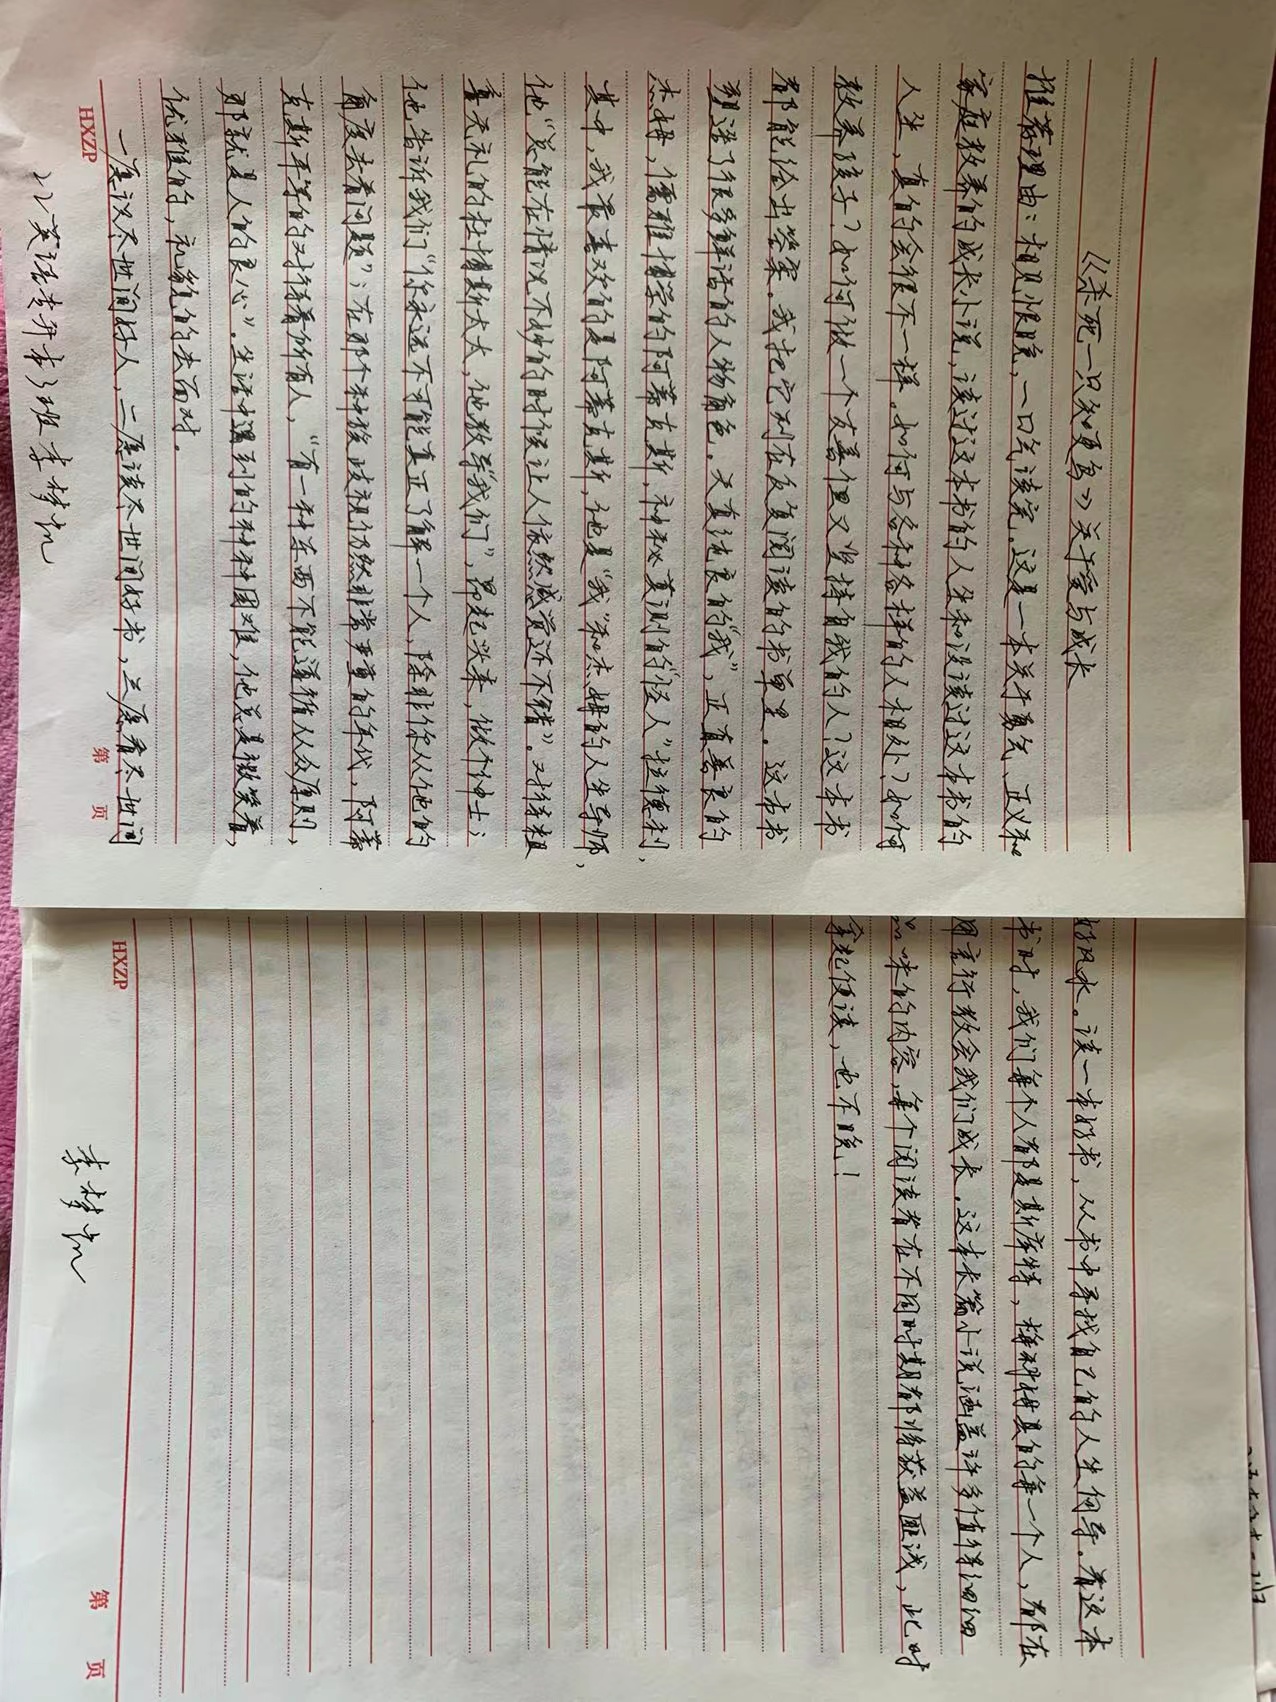 《杀死一只知更鸟》关于爱与成长
推荐理由:相见恨晚,一口气读完。这是一本关于勇气、正义和
家庭教养的成长小说,读过这本书的人生和没读过这本书的
人生,真的会很不一样。如何与各种各样的人相处?如何
教养孩子?如何做一个友善但又坚持自我的人?这本书
都能给出答案。我把它列在反复阅读的书单里。这本书
塑造了很多鲜活的人物角色。天真纯良的“我”,正直善良的
杰姆,儒雅博学的阿蒂克斯,神秘莫测的“怪人”拉德利,
其中,我最喜欢的是阿蒂克斯,他是“我”和杰姆的人生导师,
他“总能在情况不妙的时候让人依然感觉还不错”。对待粗
鲁无礼的杜博斯太太,他教导“我们”,昂起头来,做个绅士;
他告诉我们“你永远不可能真正了解一个人,除非你从他的
角度去看问题”;在那个种族歧视仍然非常严重的年代,阿蒂
克斯平等的对待着所有人,“有一种东西不能遵循从众原则,
那就是人的良心”。生活中遇到的种种困难,他总是微笑着,
优雅的,礼貌的去面对。
一愿识尽世间好人,二愿读尽世间好书,三愿看尽世间
HXZP
第 页
22英语专升本3班 李梦凯
好风水。读一本好书,从书中寻找自己的人生向导。看这本
书时,我们每个人都是斯库特,梅科姆县的每一个人,都在
用言行教会我们成长。这本长篇小说涵盖许多值得细细
品味的内容,每个阅读者在不同时期都将获益匪浅,此时
拿起便读,也不晚!
HXZP
第 页
李梦凯